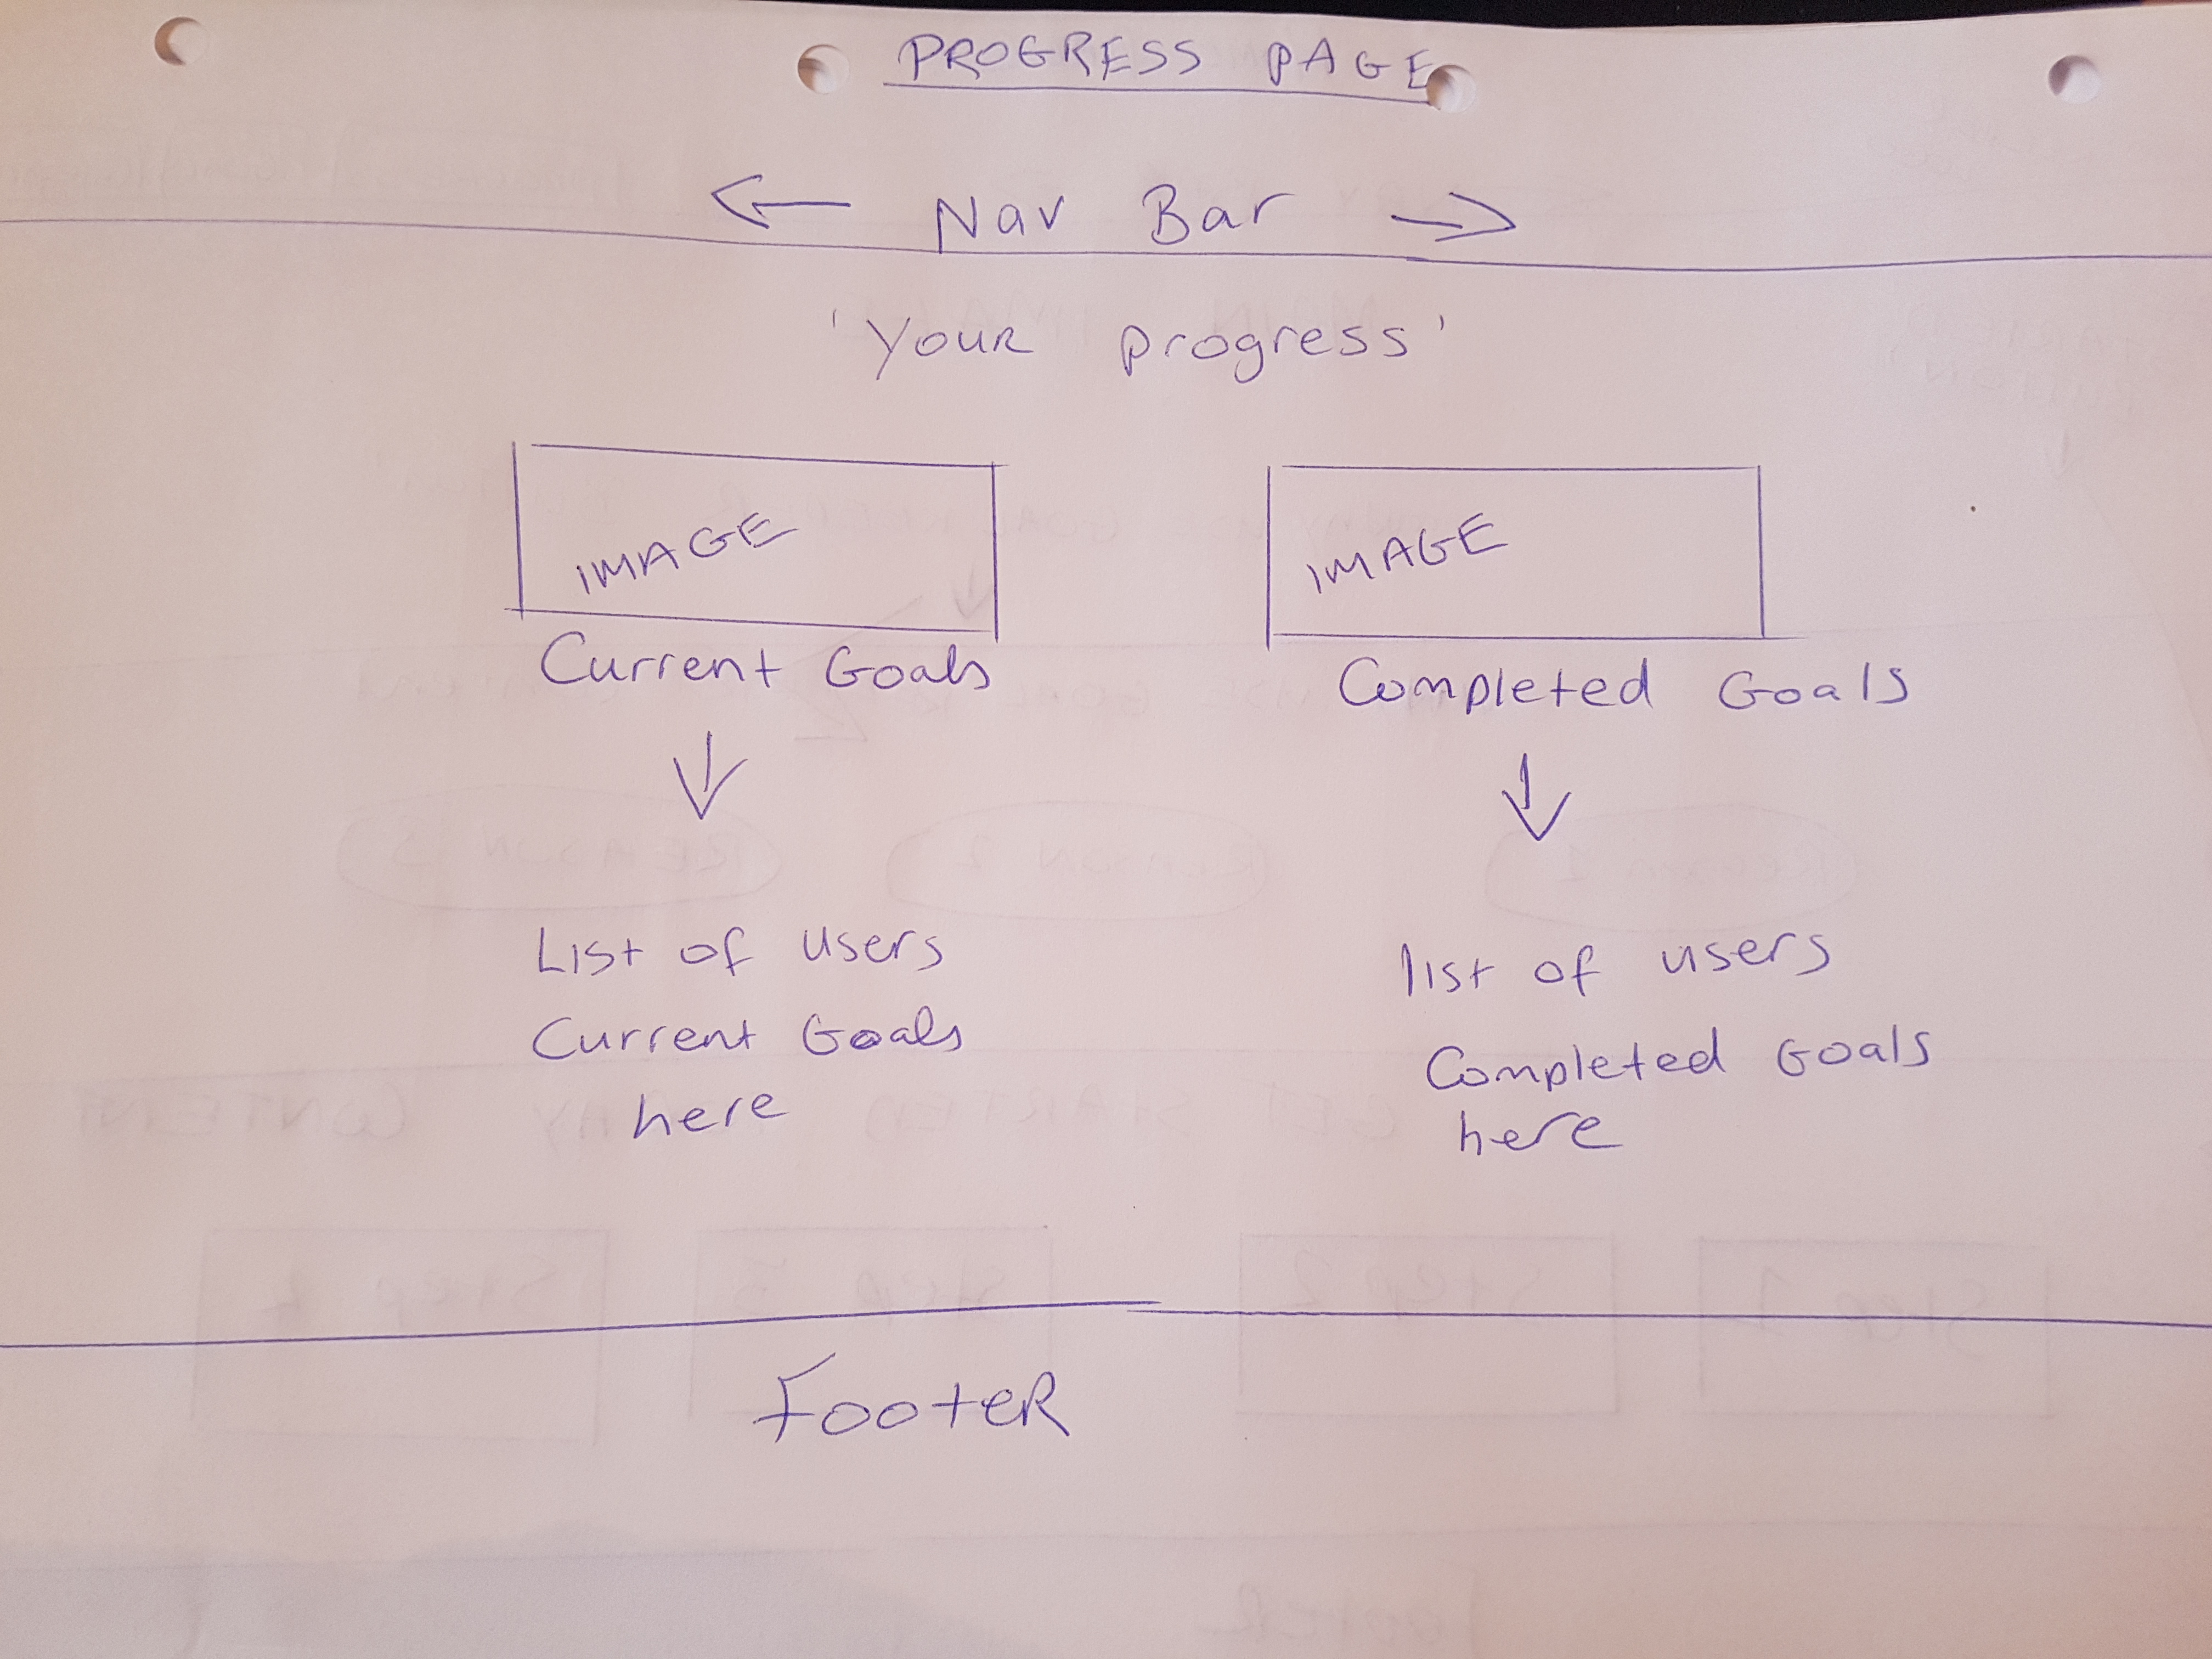 PROGRESS PAGE
← Nav Bar →
'Your progress'
IMAGE
Current Goals
↓
List of users
Current Goals
here
IMAGE
Completed Goals
↓
list of users
Completed Goals
here
FooteR